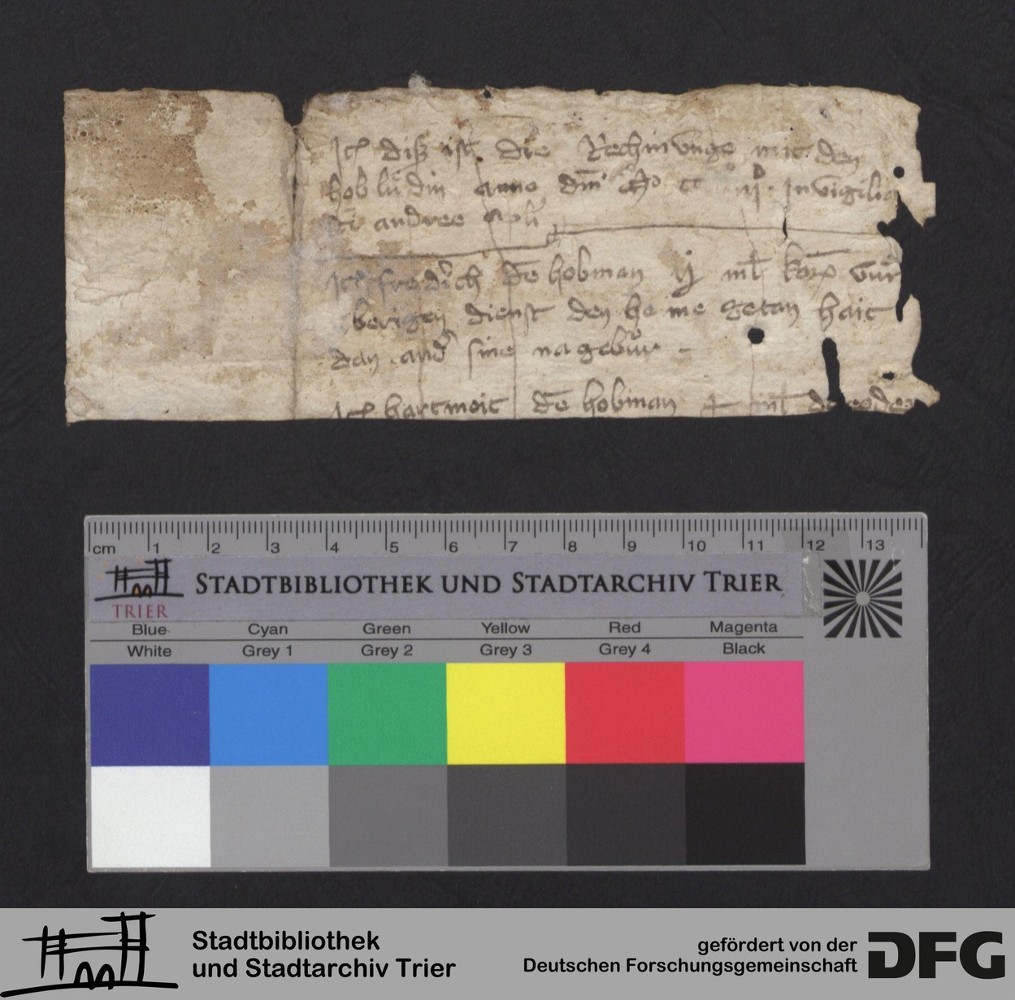 Jtem diß ist die Rechinunge mit den
hoblüdin anno dm̄ in vigilia
andree apl̄i
Jtem fredrich de hobman ij ml̄ korn vur
berigen dienst den he me getan hait
dan and' sine nagebur
Jtem hartmoit de hobman ml̄
cm 1 2 3 4 5 6 7 8 9 10 11 12 13
TRIER
STADTBIBLIOTHEK UND STADTARCHIV TRIER
Blue Cyan Green Yellow Red Magenta
White Grey 1 Grey 2 Grey 3 Grey 4 Black
Stadtbibliothek
und Stadtarchiv Trier
gefördert von der
Deutschen Forschungsgemeinschaft
DFG